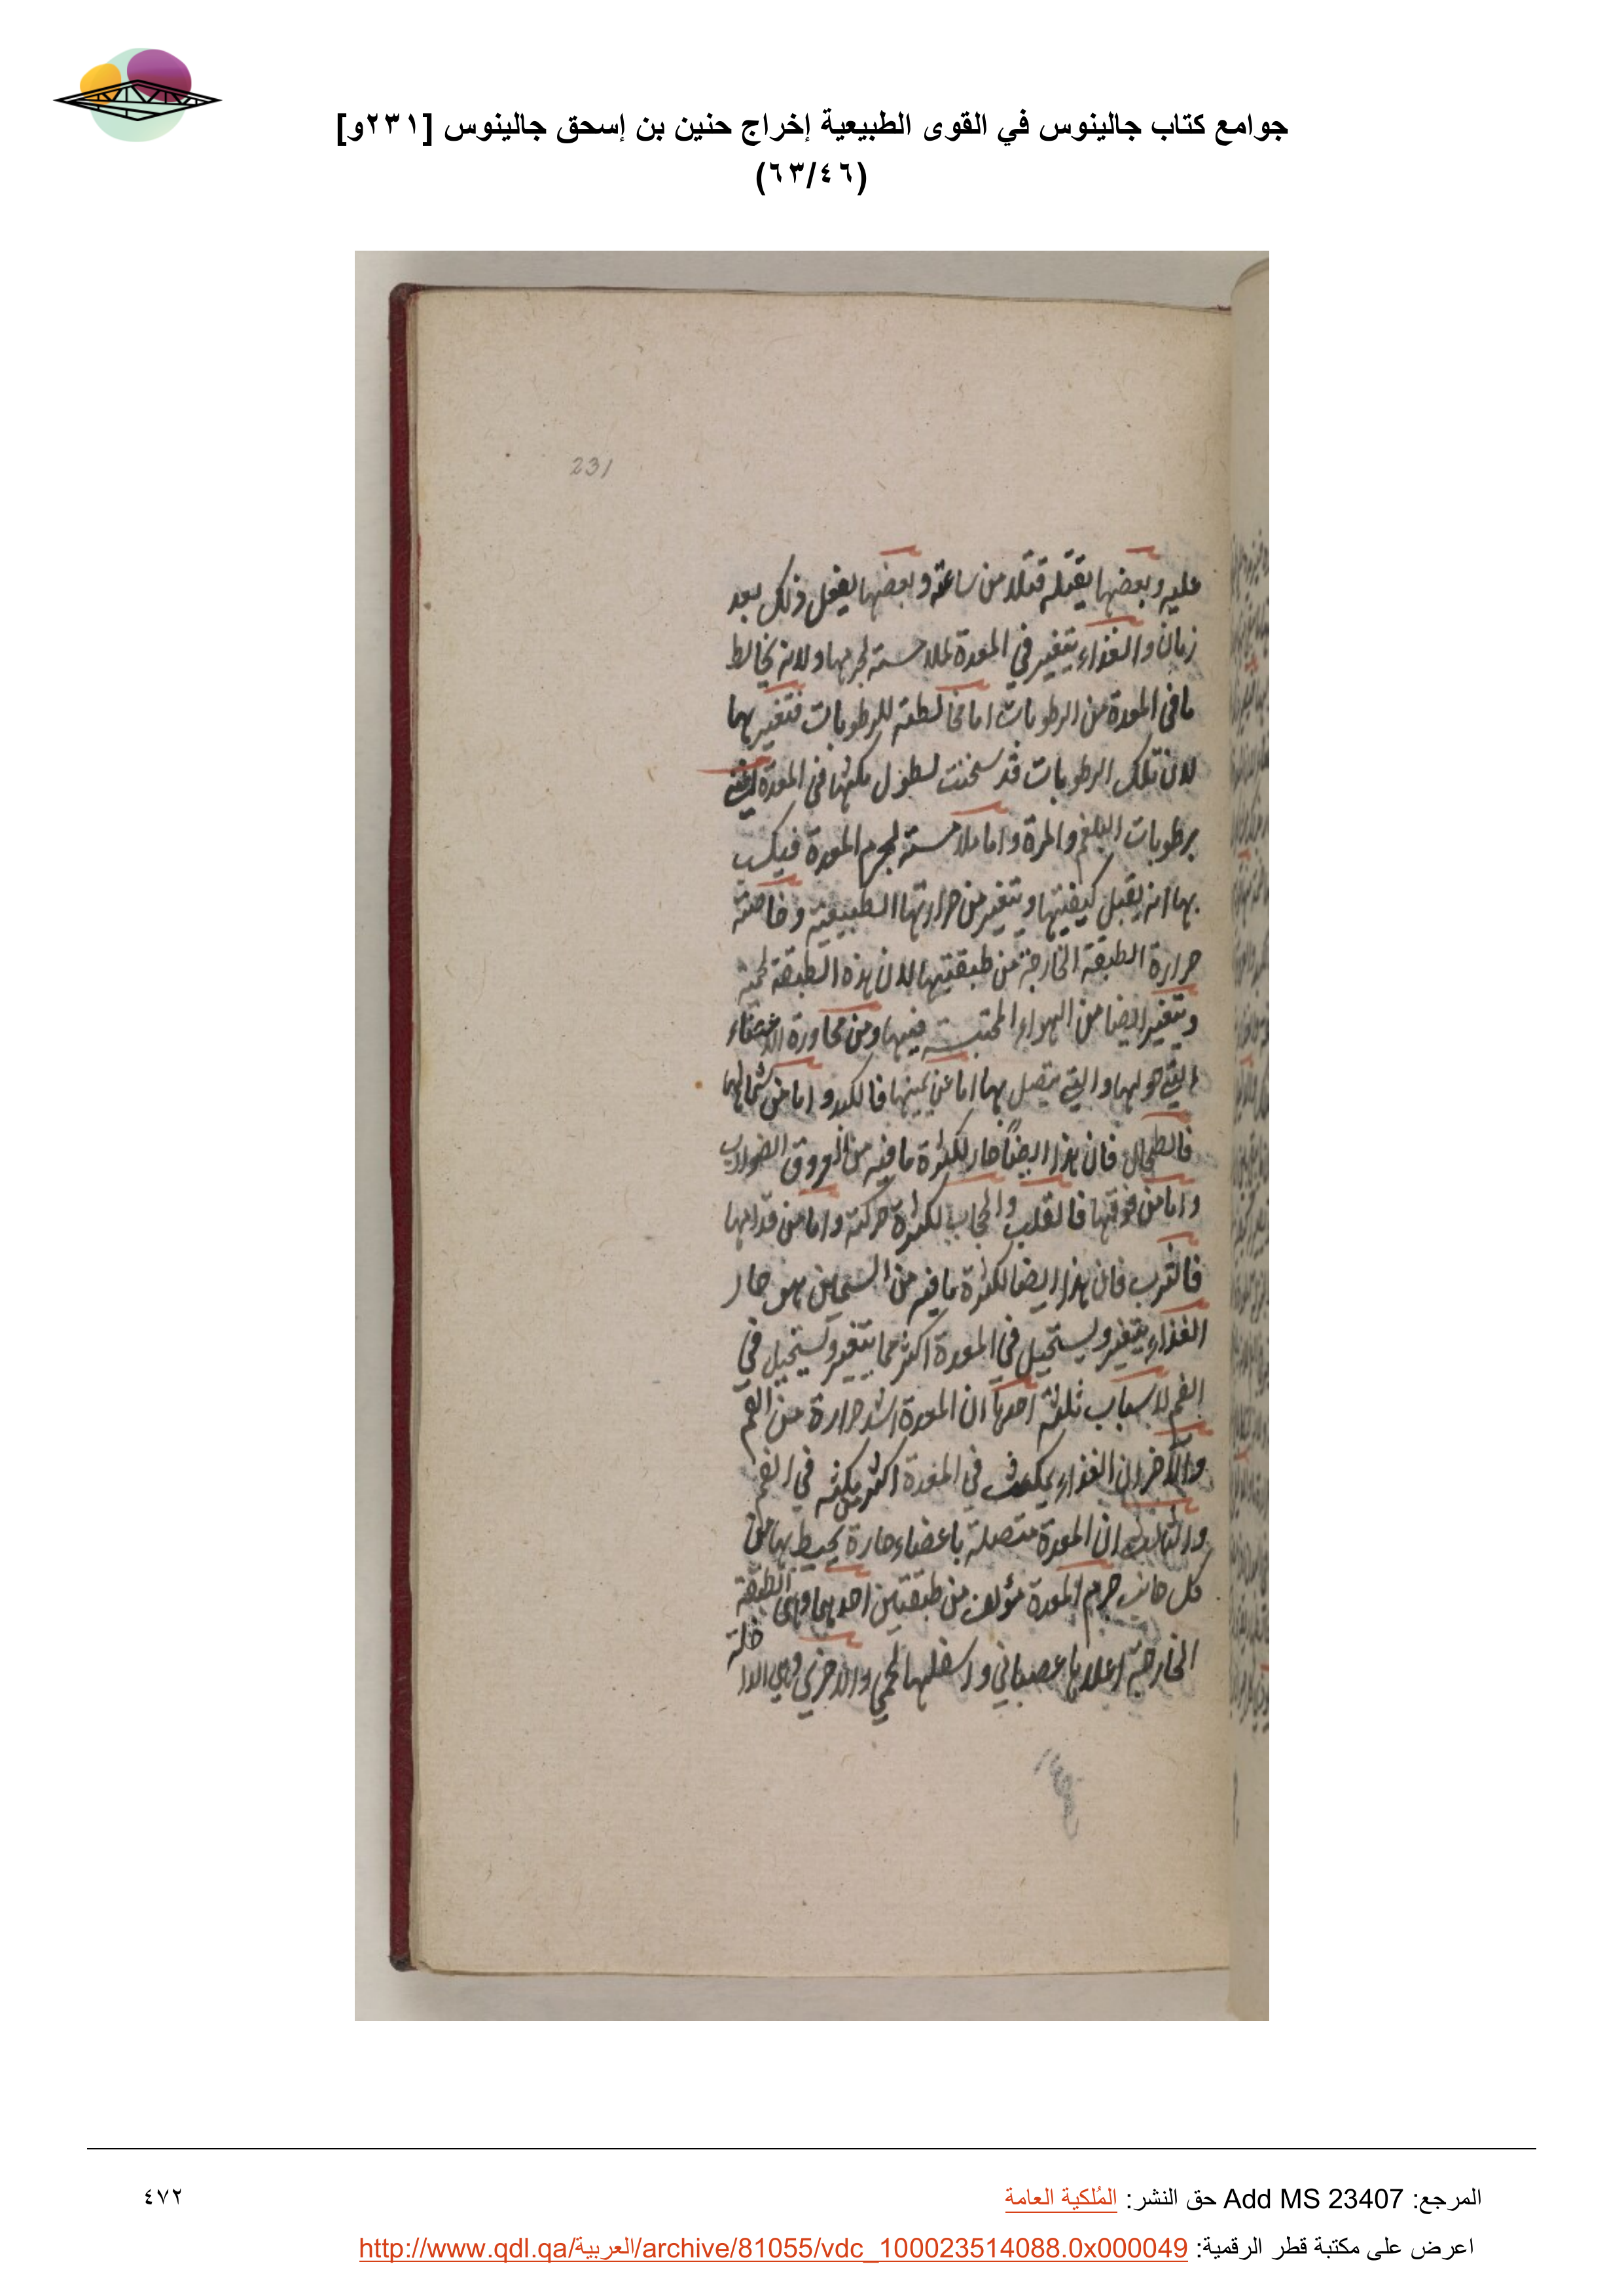 جوامع كتاب جالينوس في القوى الطبيعية إخراج حنين بن إسحق جالينوس [٢٣١و]
(٦٣/٤٦)
231
عليه وبعضها يقتله قتلا من ساعته وبعضها يفعل ذلك بعد
زمان والغذاء يتغير في المعدة لملامسته لجرمها ولانه يخالط
ما في المعدة من الرطوبات اما مخالطته للرطوبات فتغير بها
لان تلك الرطوبات قد سخنت لطول مكثها في المعدة
برطوبات البلغم والمرة واما ملامسته لجرم المعدة فيكسب
بها انه يقبل كيفيتها ويتغير من حرارتها الطبيعية وخاصة
حرارة الطبقة الخارجة من طبقتيها لان هذه الطبقة لحمية
ويتغير ايضا من الهواء المحتبس فيها ومن مجاورة الاحشاء
التي حولها والتي يتصل بها اما عن يمينها فالكبد واما من شمالها
فالطحال فان هذا ايضا حار لكثرة ما فيه من العروق الضوارب
واما من فوقها فالقلب والحجاب لكثرة حركته واما من قدامها
فالثرب فان هذا ايضا لكثرة ما فيه من السمين هو حار
الغذاء يتغير ويستحيل في المعدة اكثر مما يتغير ويستحيل في
الفم لاسباب ثلثة احدها ان المعدة اشد حرارة من الفم
والآخر ان الغذاء يمكث في المعدة اكثر من مكثه في الفم
والثالث ان المعدة متصلة باعضاء حارة يحيط بها من
كل جانب جرم المعدة مؤلف من طبقتين احديهما وهي الطبقة
الخارجة اعلاها عصباني واسفلها لحمي والاخرى وهي الداخلة
المرجع: Add MS 23407 حق النشر: المُلكية العامة
٤٧٢
اعرض على مكتبة قطر الرقمية: http://www.qdl.qa/العربية/archive/81055/vdc_100023514088.0x000049